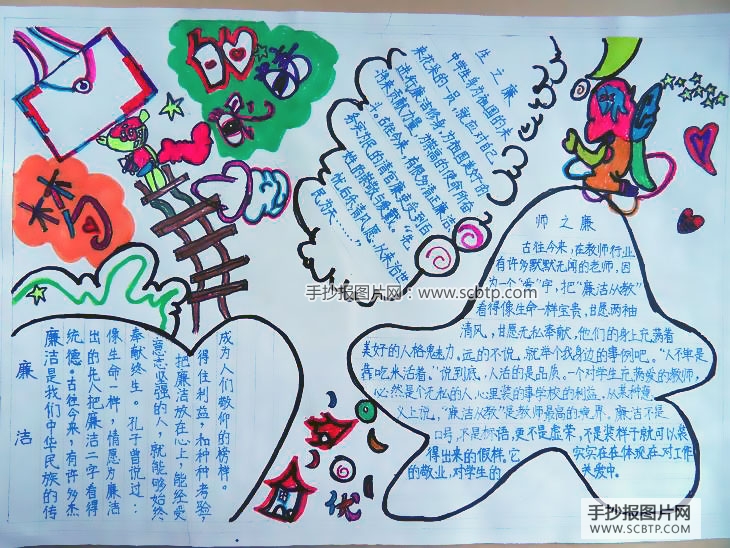 廉洁
廉洁是我们中华民族的传
统德。古往今来，有许多杰
出的先人把廉洁二字看得
像生命一样，情愿为廉洁
奉献终生。孔子曾说过：
意志坚强的人，就能够始终
把廉洁放在心上，能经受
得住利益，和种种考验，
成为人们敬仰的榜样。
生之廉
中学生身为祖国的未
来花朵的一员，就应对自己
进行廉洁修身，为祖国美好的
将来贡献力量，为崇高的使命而奋
斗。古往今来，有很多清正廉洁
务实为民的清官廉吏受到百
姓的崇敬与爱戴。"先
忧后乐清风愿，从来治世
民为天……"
师之廉
古往今来，在教师行业
有许多默默无闻的老师，因
为一个"爱"字，把"廉洁从教"
看得像生命一样宝贵，甘愿两袖
清风，甘愿无私奉献，他们的身上充满着
美好的人格魅力。远的不说，就举个我身边的事例吧。"人不单是
靠吃米活着。"说到底，人活的是品质。一个对学生充满爱的教师，
必然是个无私的人，心里装的事学校的利益。从某种意
义上说，"廉洁从教"是教师最高的境界。廉洁不是
口号，不是标语，更不是虚荣，不是装样子就可以装
得出来的假样。它 实实在在体现在对工作
的敬业，对学生的 关爱中。
优
手抄报图片网：www.scbtp.com
手抄报图片网
WWW.SCBTP.COM